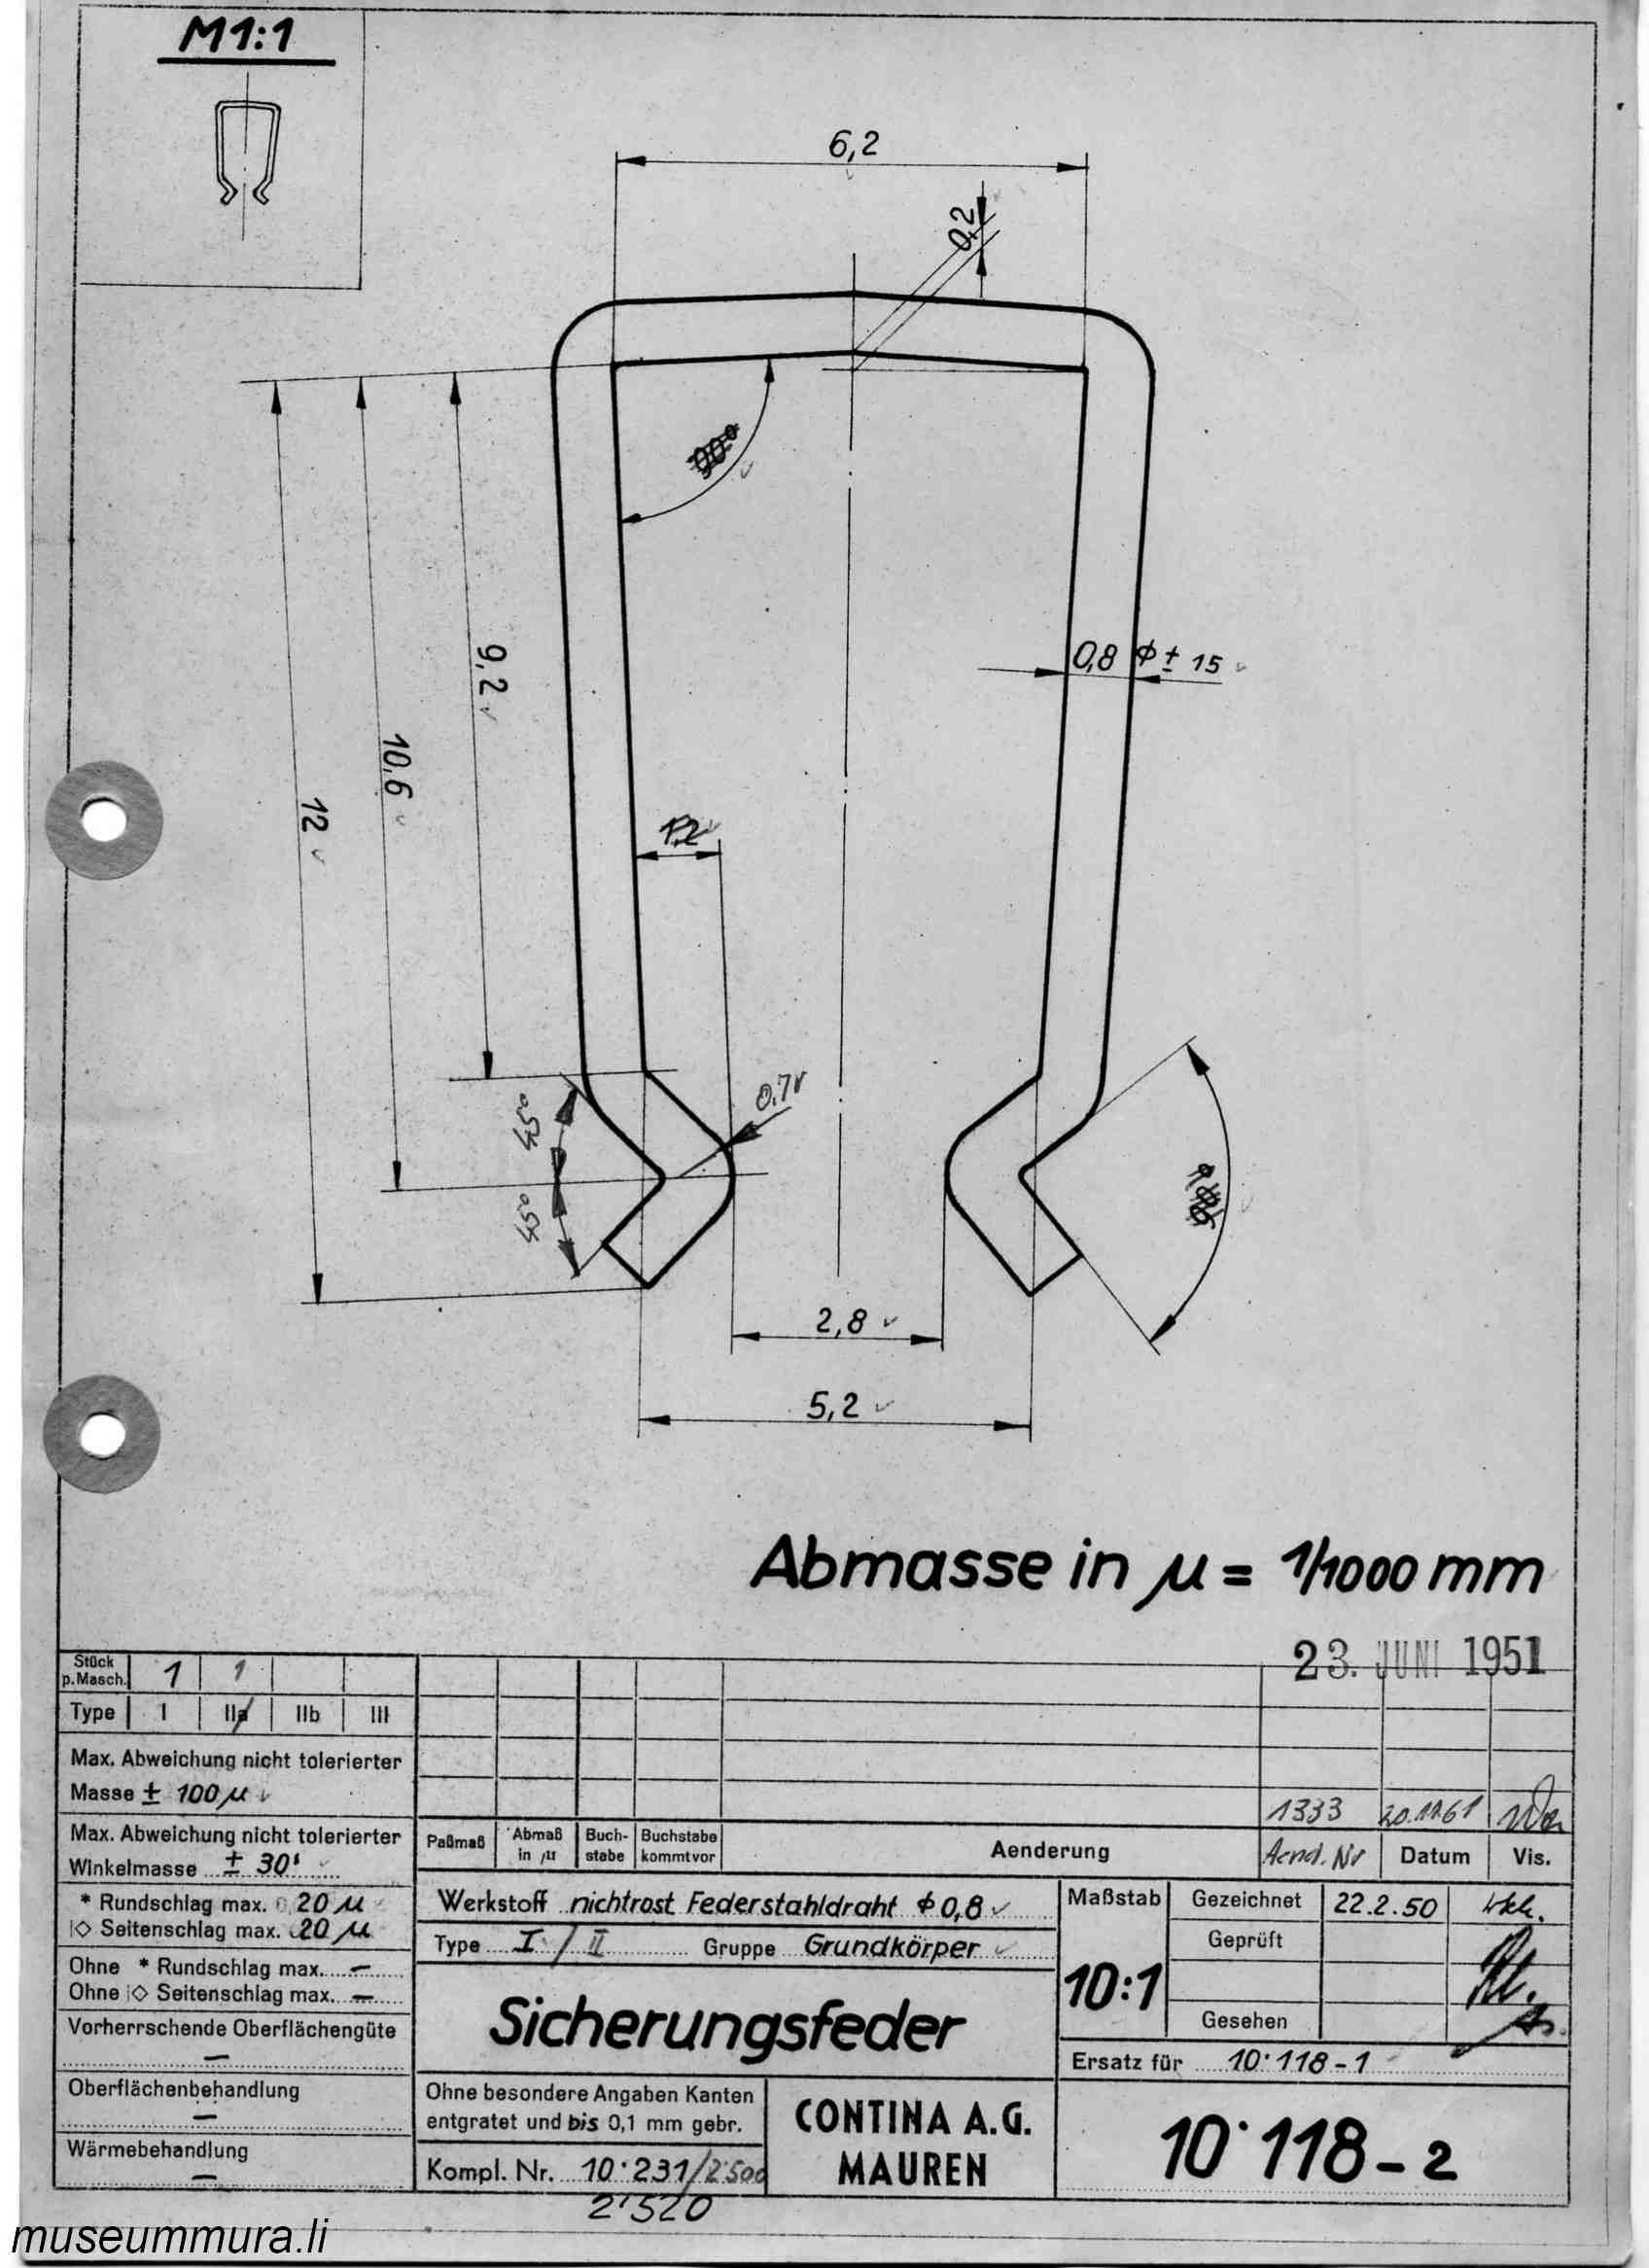 M1:1
6,2
0,2
90°
9,2
10,6
12
0,8 ϕ ± 15
1,2
0,7r
45°
45°
2,8
5,2
Abmasse in µ = 1/1000 mm
23. JUNI 1951
Stück p. Masch. 1 1
Type I IIa IIb III
Max. Abweichung nicht tolerierter
Masse ± 100 µ
Max. Abweichung nicht tolerierter
Winkelmasse ± 30'
* Rundschlag max. 0,20 µ
|◇ Seitenschlag max. 020 µ
Ohne * Rundschlag max. –
Ohne |◇ Seitenschlag max. –
Vorherrschende Oberflächengüte
–
Oberflächenbehandlung
–
Wärmebehandlung
–
1333 20.11.61
Paßmaß Abmaß in µ Buch-stabe Buchstabe kommt vor Aenderung Aend. Nr Datum Vis.
Werkstoff nichtrost Federstahldraht ϕ 0,8
Type I / II Gruppe Grundkörper
Sicherungsfeder
Ohne besondere Angaben Kanten
entgratet und bis 0,1 mm gebr.
Kompl. Nr. 10·231/2'500
2'520
CONTINA A.G.
MAUREN
Maßstab
10:1
Gezeichnet 22.2.50
Geprüft
Gesehen
Ersatz für 10·118-1
10·118-2
museummura.li